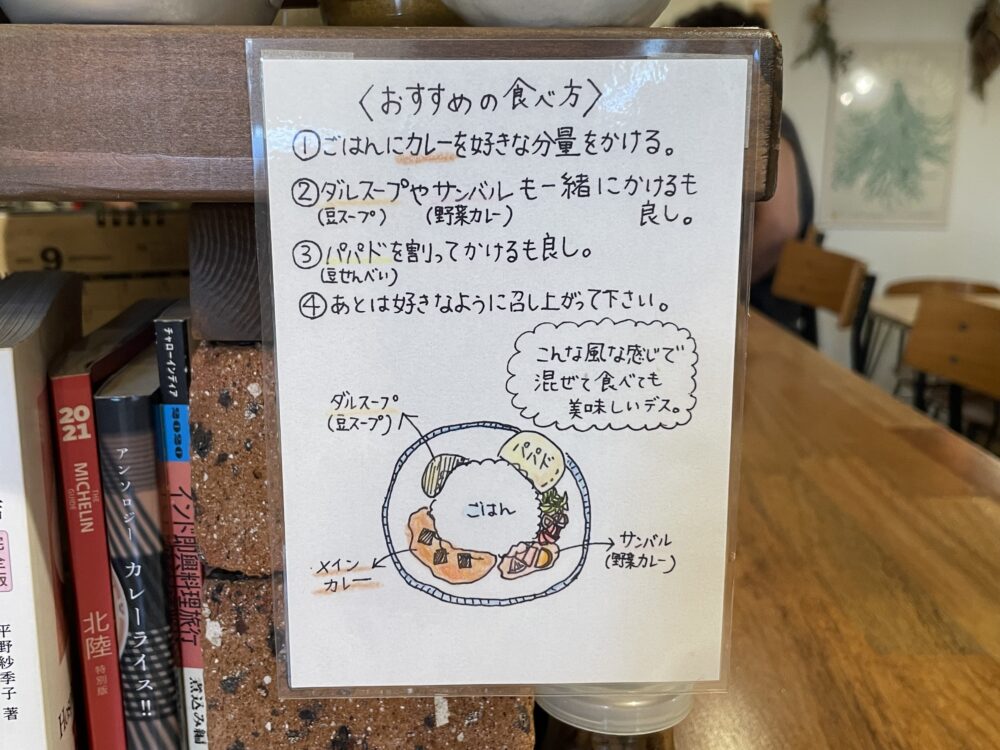 〈おすすめの食べ方〉
①ごはんにカレーを好きな分量をかける。
②ダルスープやサンバルも一緒にかけるも
(豆スープ) (野菜カレー) 良し。
③パパドを割ってかけるも良し。
(豆せんべい)
④あとは好きなように召し上がって下さい。
こんな風な感じで
混ぜて食べても
美味しいデス。
ダルスープ
(豆スープ)
パパド
ごはん
メイン
カレー
サンバル
(野菜カレー)
9
2021
THE
MICHELIN
GUIDE
北陸
特別版
アンソロジー カレーライス!!
チャローインディア
2020
インド即興料理旅行
煮込み編
完全版
平野紗季子 著